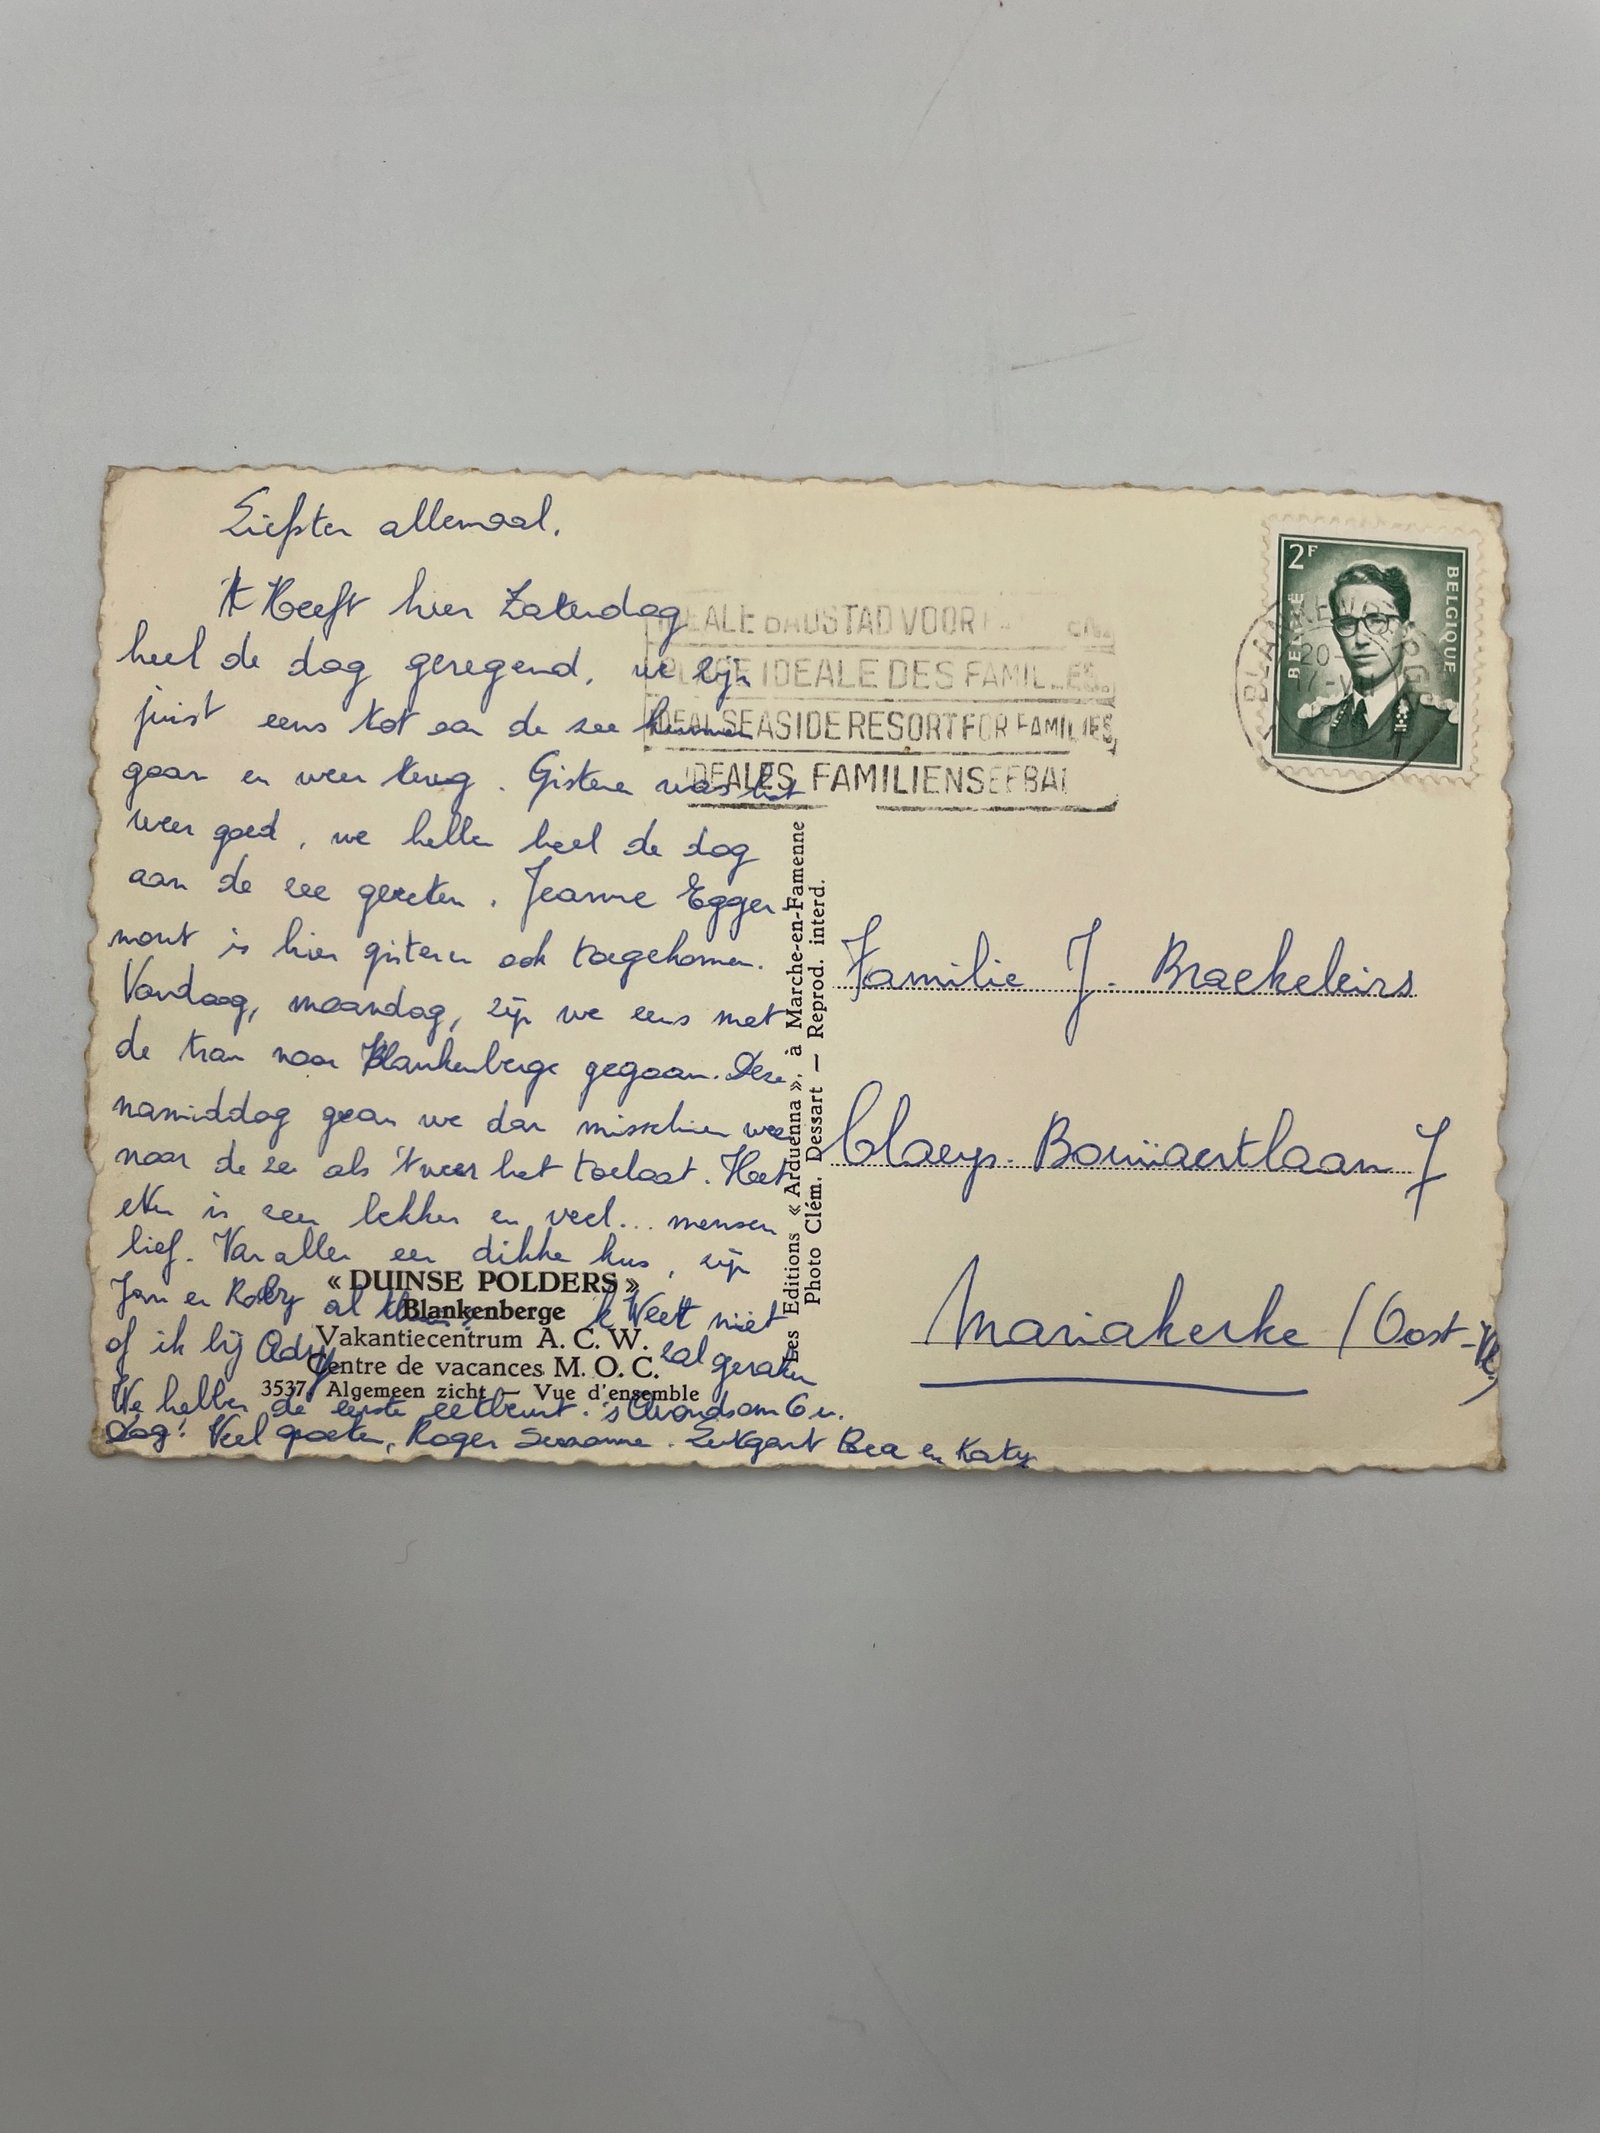 Liefsten allemaal.
't Heeft hier Zaterdag
heel de dag geregend, we zijn
juist eens tot aan de zee kunnen
gaan en weer terug. Gisteren was het
weer goed, we hebben heel de dag
aan de zee gezeten. Jeanne Egger-
mont is hier gisteren ook toegekomen.
Vandaag, maandag, zijn we eens met
de tram naar Blankenberge gegaan. Deze
namiddag gaan we dan misschien weer
naar de zee als 't weer het toelaat. Het
eten is zeer lekker en veel... mensen
lief. Van allen een dikke kus, zijn
Jan en Roby al thuis? Ik Weet niet
of ik bij Adry zal geraken
We hebben de eerste eetbeurt. 's Avonds om 6 u.
Dag! Veel groeten, Roger Suzanne. Lutgart Bea en Katy
« DUINSE POLDERS »
Blankenberge
Vakantiecentrum A. C. W.
Centre de vacances M. O. C.
3537 Algemeen zicht — Vue d'ensemble
Les Editions « Arduenna », à Marche-en-Famenne
Photo Clém. Dessart — Reprod. interd.
IDEALE BADSTAD VOOR
PLAGE IDEALE DES FAMILLES
IDEAL SEASIDE RESORT FOR FAMILIES
IDEALES FAMILIENSEEBAD
2F
BELGIË
BELGIQUE
BLANKENBERGE
20
Familie J. Braekeleirs
Claeys-Bouüaertlaan 7
Mariakerke / (Oost-Vl.)